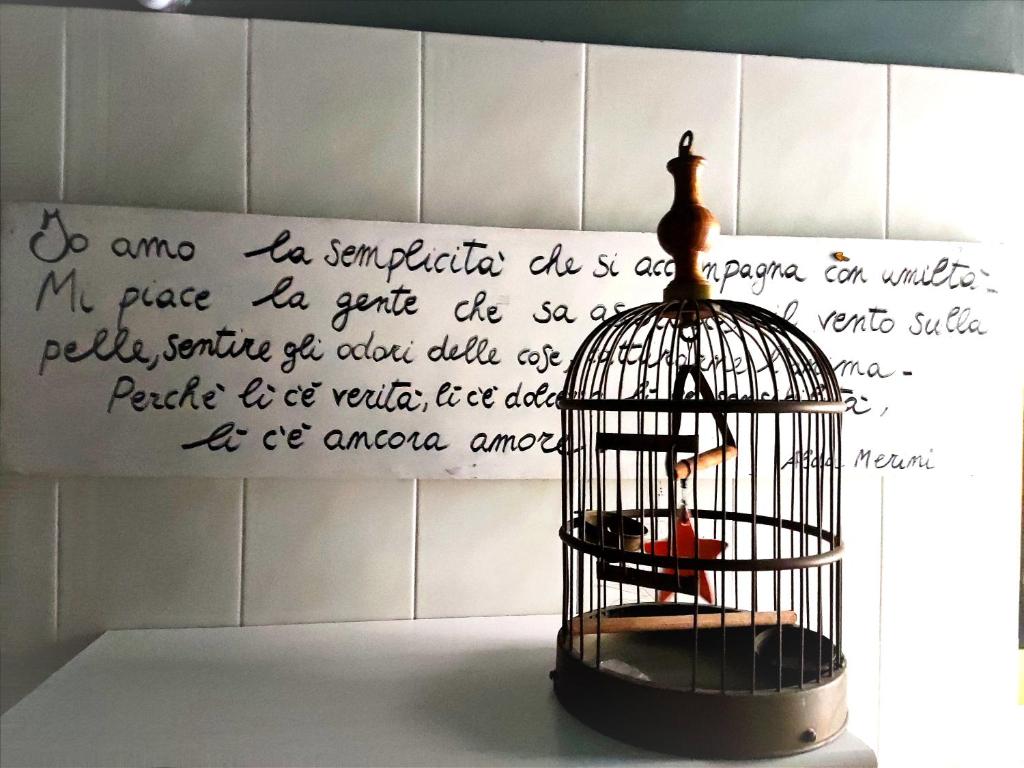 Io amo la semplicità che si accompagna con umiltà -
Mi piace la gente che sa il vento sulla
pelle, sentire gli odori delle cose, l'anima -
Perchè lì c'è verità, lì c'è lì c'è
lì c'è ancora amore
Alda Merini